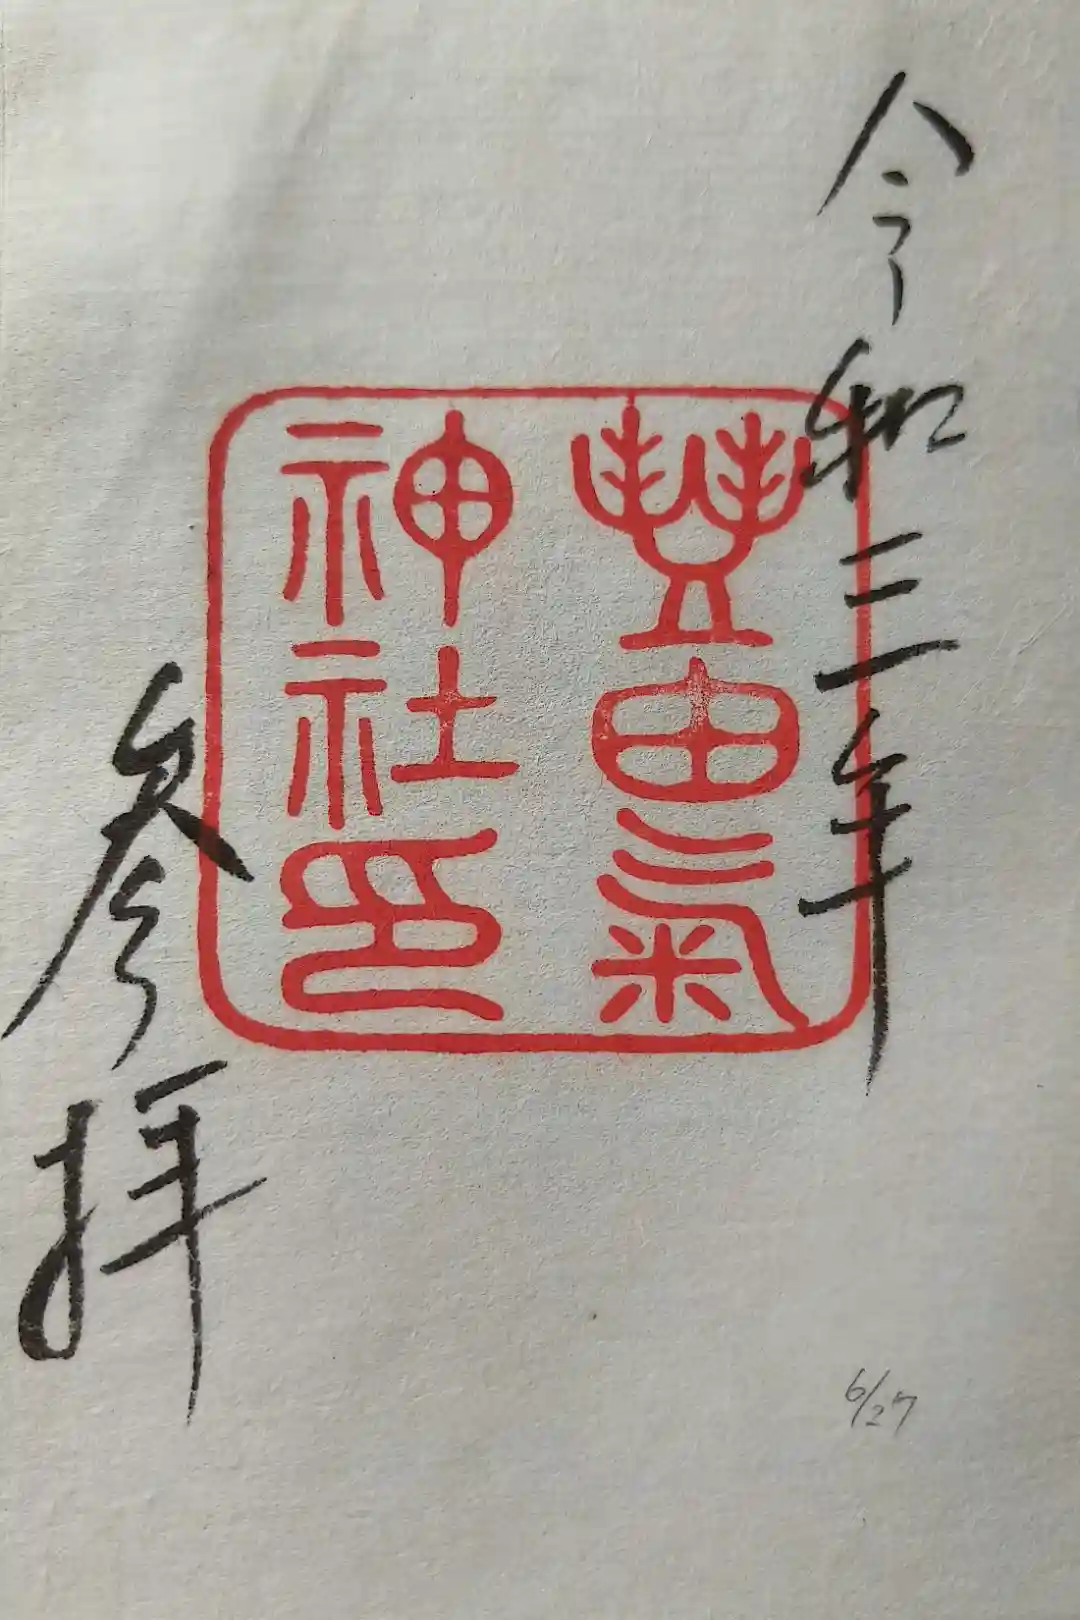 令和三年
豐由氣
神社印
参拝
6/27